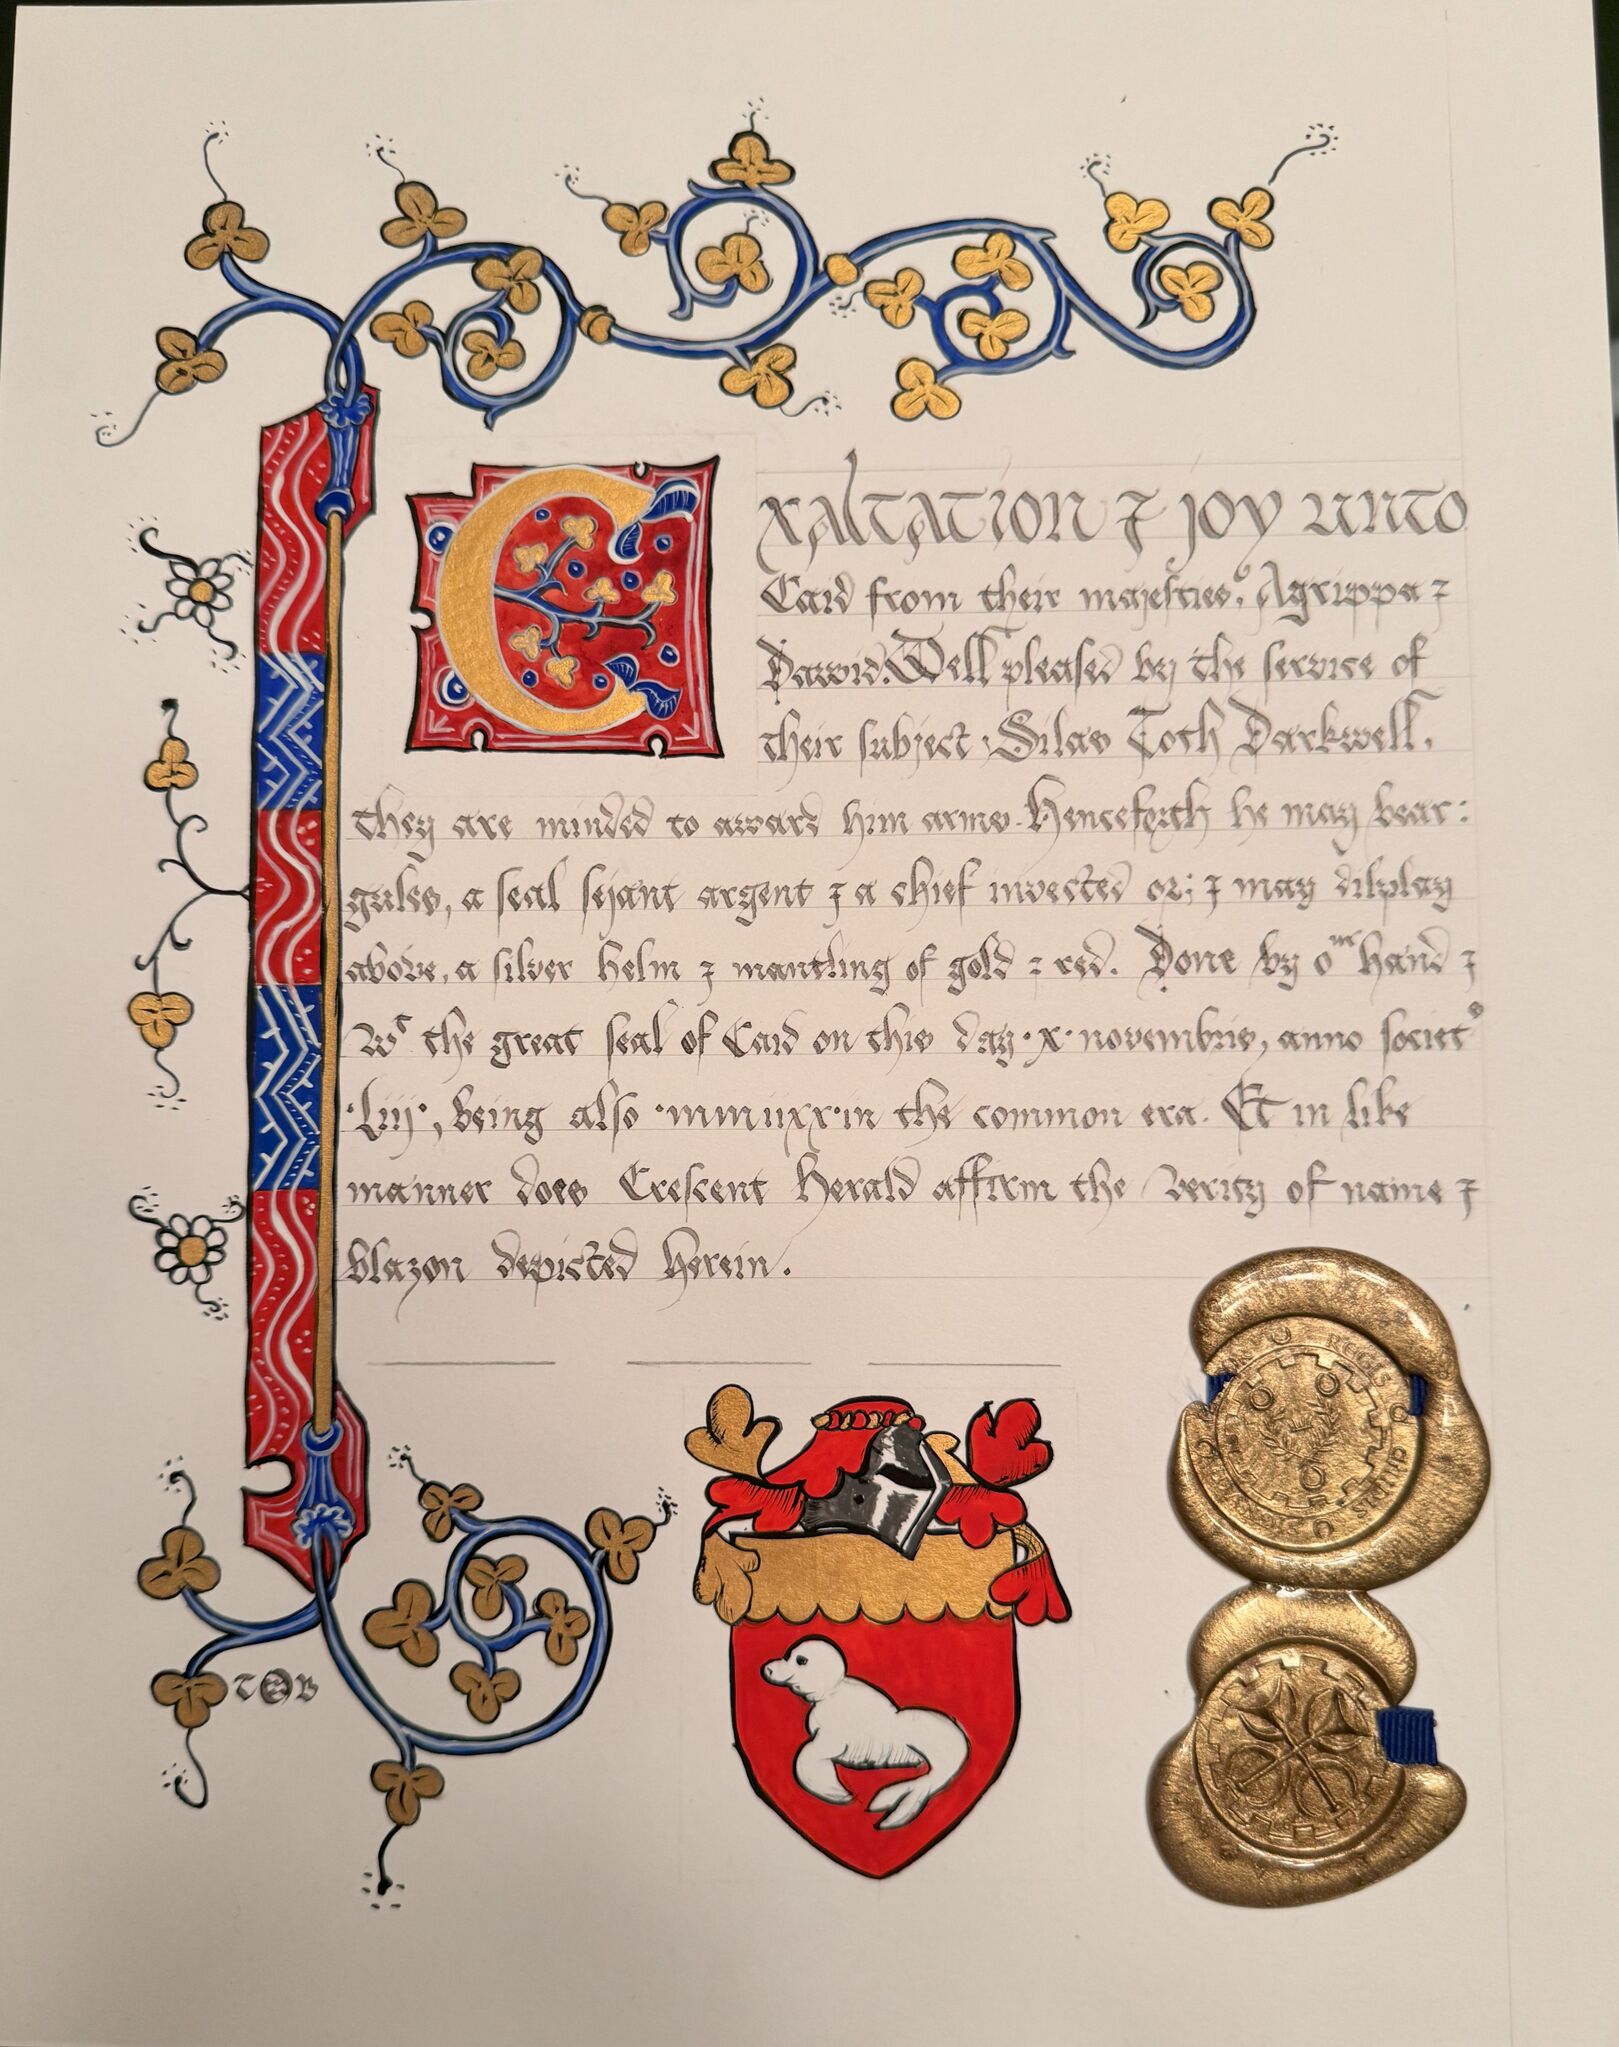 EXALTATION & JOY UNTO
Caid from their majesties, Agrippa &
Dawid. Well pleased by the service of
their subject, Silas Toth Darkwell,
they are minded to award him arms. Henceforth he may bear:
gules, a seal sejant argent & a chief invected or; & may display
above, a silver helm & mantling of gold & red. Done by oʳ hand &
Wᵗ the great seal of Caid on this day ·X· novembris, anno societˢ
·Liij·, being also ·mmiixx· in the common era. Et in like
manner does Crescent Herald affirm the verity of name &
blazon depicted herein.
REGIS
T B